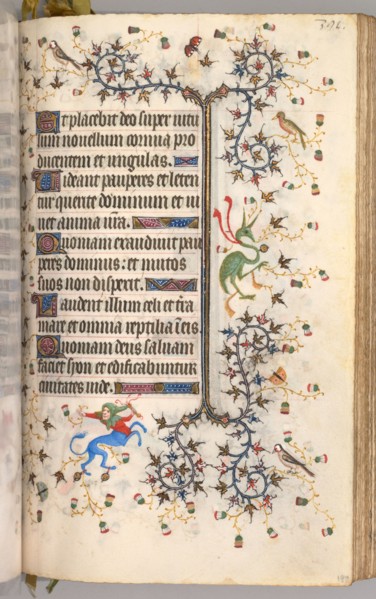 396.
Et placebit deo super uitu
lum nouellum cornua pro
ducentem et ungulas.
Uideant pauperes et leten
tur querite dominum et ui
uet anima ura.
Quoniam exaudiuit pau
peres dominus: et uinctos
suos non despexit.
Laudent illum celi et tra
mare et omnia reptilia i eis.
Quoniam deus saluam
faciet syon et edificabuntur
ciuitates iude.